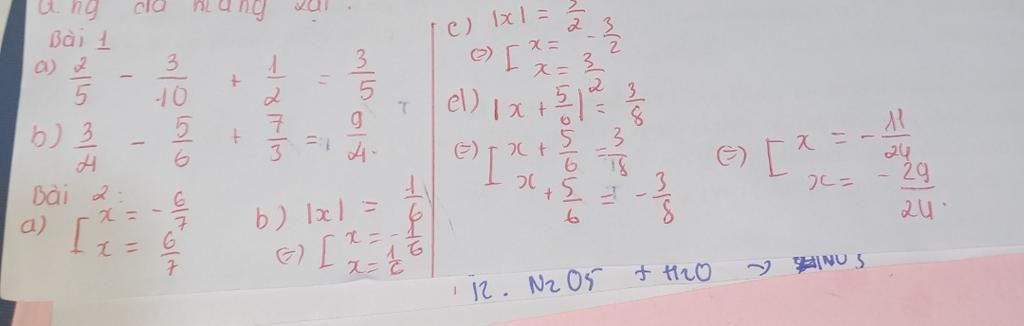 Bài 1
a) 2/5 - 3/10 + 1/2 = 3/5
b) 3/4 - 5/6 + 7/3 = 9/4.
Bài 2:
a) [ x = - 6/7
x = 6/7
b) |x| = 1/6
(=) [ x = - 1/6
x = 1/6
c) |x| = 3/2
(=) [ x = - 3/2
x = 3/2
d) | x + 5/6 | = 3/8
(=) [ x + 5/6 = 3/8
x + 5/6 = - 3/8
(=) [ x = - 11/24
x = - 29/24.
12. N2O5 + H2O →